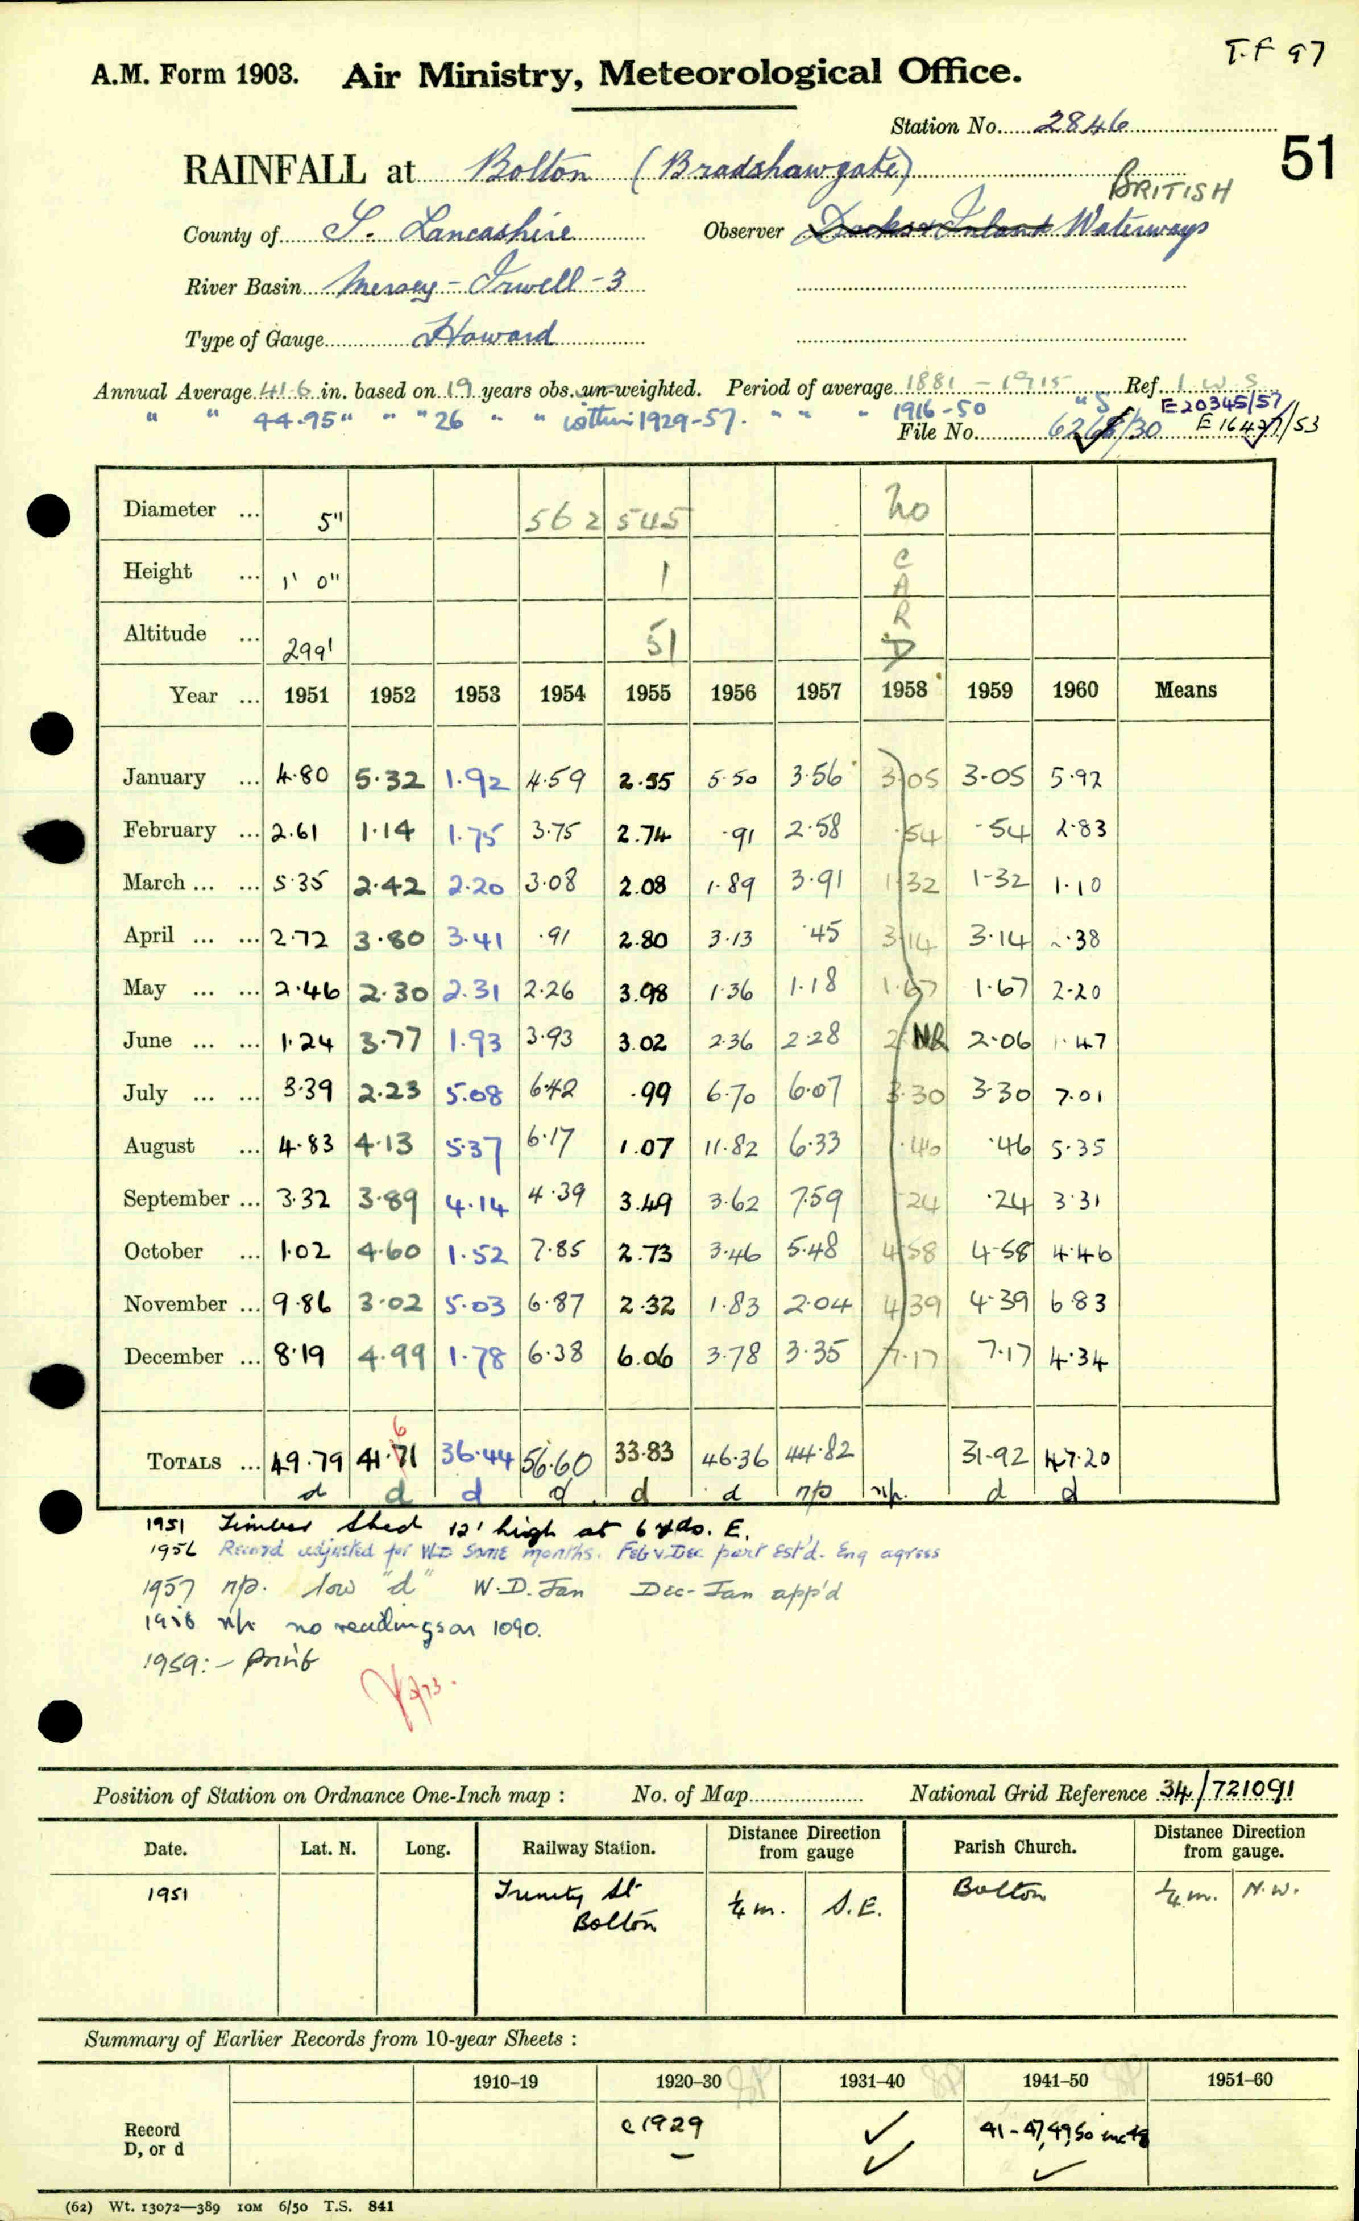 T.F 97
A.M. Form 1903. Air Ministry, Meteorological Office.
Station No. 2846
51
RAINFALL at Bolton (Bradshawgate)
BRITISH
County of S. Lancashire Observer Docks & Inland Waterways
River Basin Mersey - Irwell - 3
Type of Gauge Howard
Annual Average 41.6 in. based on 19 years obs. un-weighted. Period of average 1881 - 1915 Ref. I W S
" " 44.95 " " " 26 " " within 1929-57. " " " 1916-50 " S E20345/57
File No. 626 /30 E 16427/53
Diameter ... 5" 562 545 No
Height ... 1' 0" 1 CAR
Altitude ... 299' 51 D
Year ... 1951 1952 1953 1954 1955 1956 1957 1958 1959 1960 Means
January ... 4.80 5.32 1.92 4.59 2.55 5.50 3.56 3.05 3.05 5.92
February ... 2.61 1.14 1.75 3.75 2.74 .91 2.58 .54 .54 2.83
March ... ... 5.35 2.42 2.20 3.08 2.08 1.89 3.91 1.32 1.32 1.10
April ... ... 2.72 3.80 3.41 .91 2.80 3.13 .45 3.14 3.14 2.38
May ... ... 2.46 2.30 2.31 2.26 3.98 1.36 1.18 1.67 1.67 2.20
June ... ... 1.24 3.77 1.93 3.93 3.02 2.36 2.28 2 NR 2.06 1.47
July ... ... 3.39 2.23 5.08 6.42 .99 6.70 6.07 3.30 3.30 7.01
August ... 4.83 4.13 5.37 6.17 1.07 11.82 6.33 .46 .46 5.35
September ... 3.32 3.89 4.14 4.39 3.49 3.62 7.59 .24 .24 3.31
October ... 1.02 4.60 1.52 7.85 2.73 3.46 5.48 4.58 4.58 4.46
November ... 9.86 3.02 5.03 6.87 2.32 1.83 2.04 4.39 4.39 6.83
December ... 8.19 4.99 1.78 6.38 6.06 3.78 3.35 7.17 7.17 4.34
6
TOTALS ... 49.79 41.71 36.44 56.60 33.83 46.36 44.82 31.92 47.20
d d d d d d n/p n/p. d d
1951 Timber Shed 12' high at 6 yds. E.
1956 Record adjusted for W.D some months. Feb & Dec part Est'd. Eng agrees
1957 n/p. low "d" W.D. Jan Dec-Jan app'd
1958 n/p no readings on 1090.
1959:- print
Position of Station on Ordnance One-Inch map : No. of Map National Grid Reference 34/721091
Date. Lat. N. Long. Railway Station. Distance from Direction gauge Parish Church. Distance from Direction gauge.
1951 Trinity St Bolton 1/4 m. S.E. Bolton 1/4 m. N.W.
Summary of Earlier Records from 10-year Sheets :
1910–19 1920–30 1931–40 1941–50 1951–60
Record c 1929 ✓ 41-47,49,50 inc 48
D, or d – ✓ ✓
(62) Wt. 13072—389 10M 6/50 T.S. 841